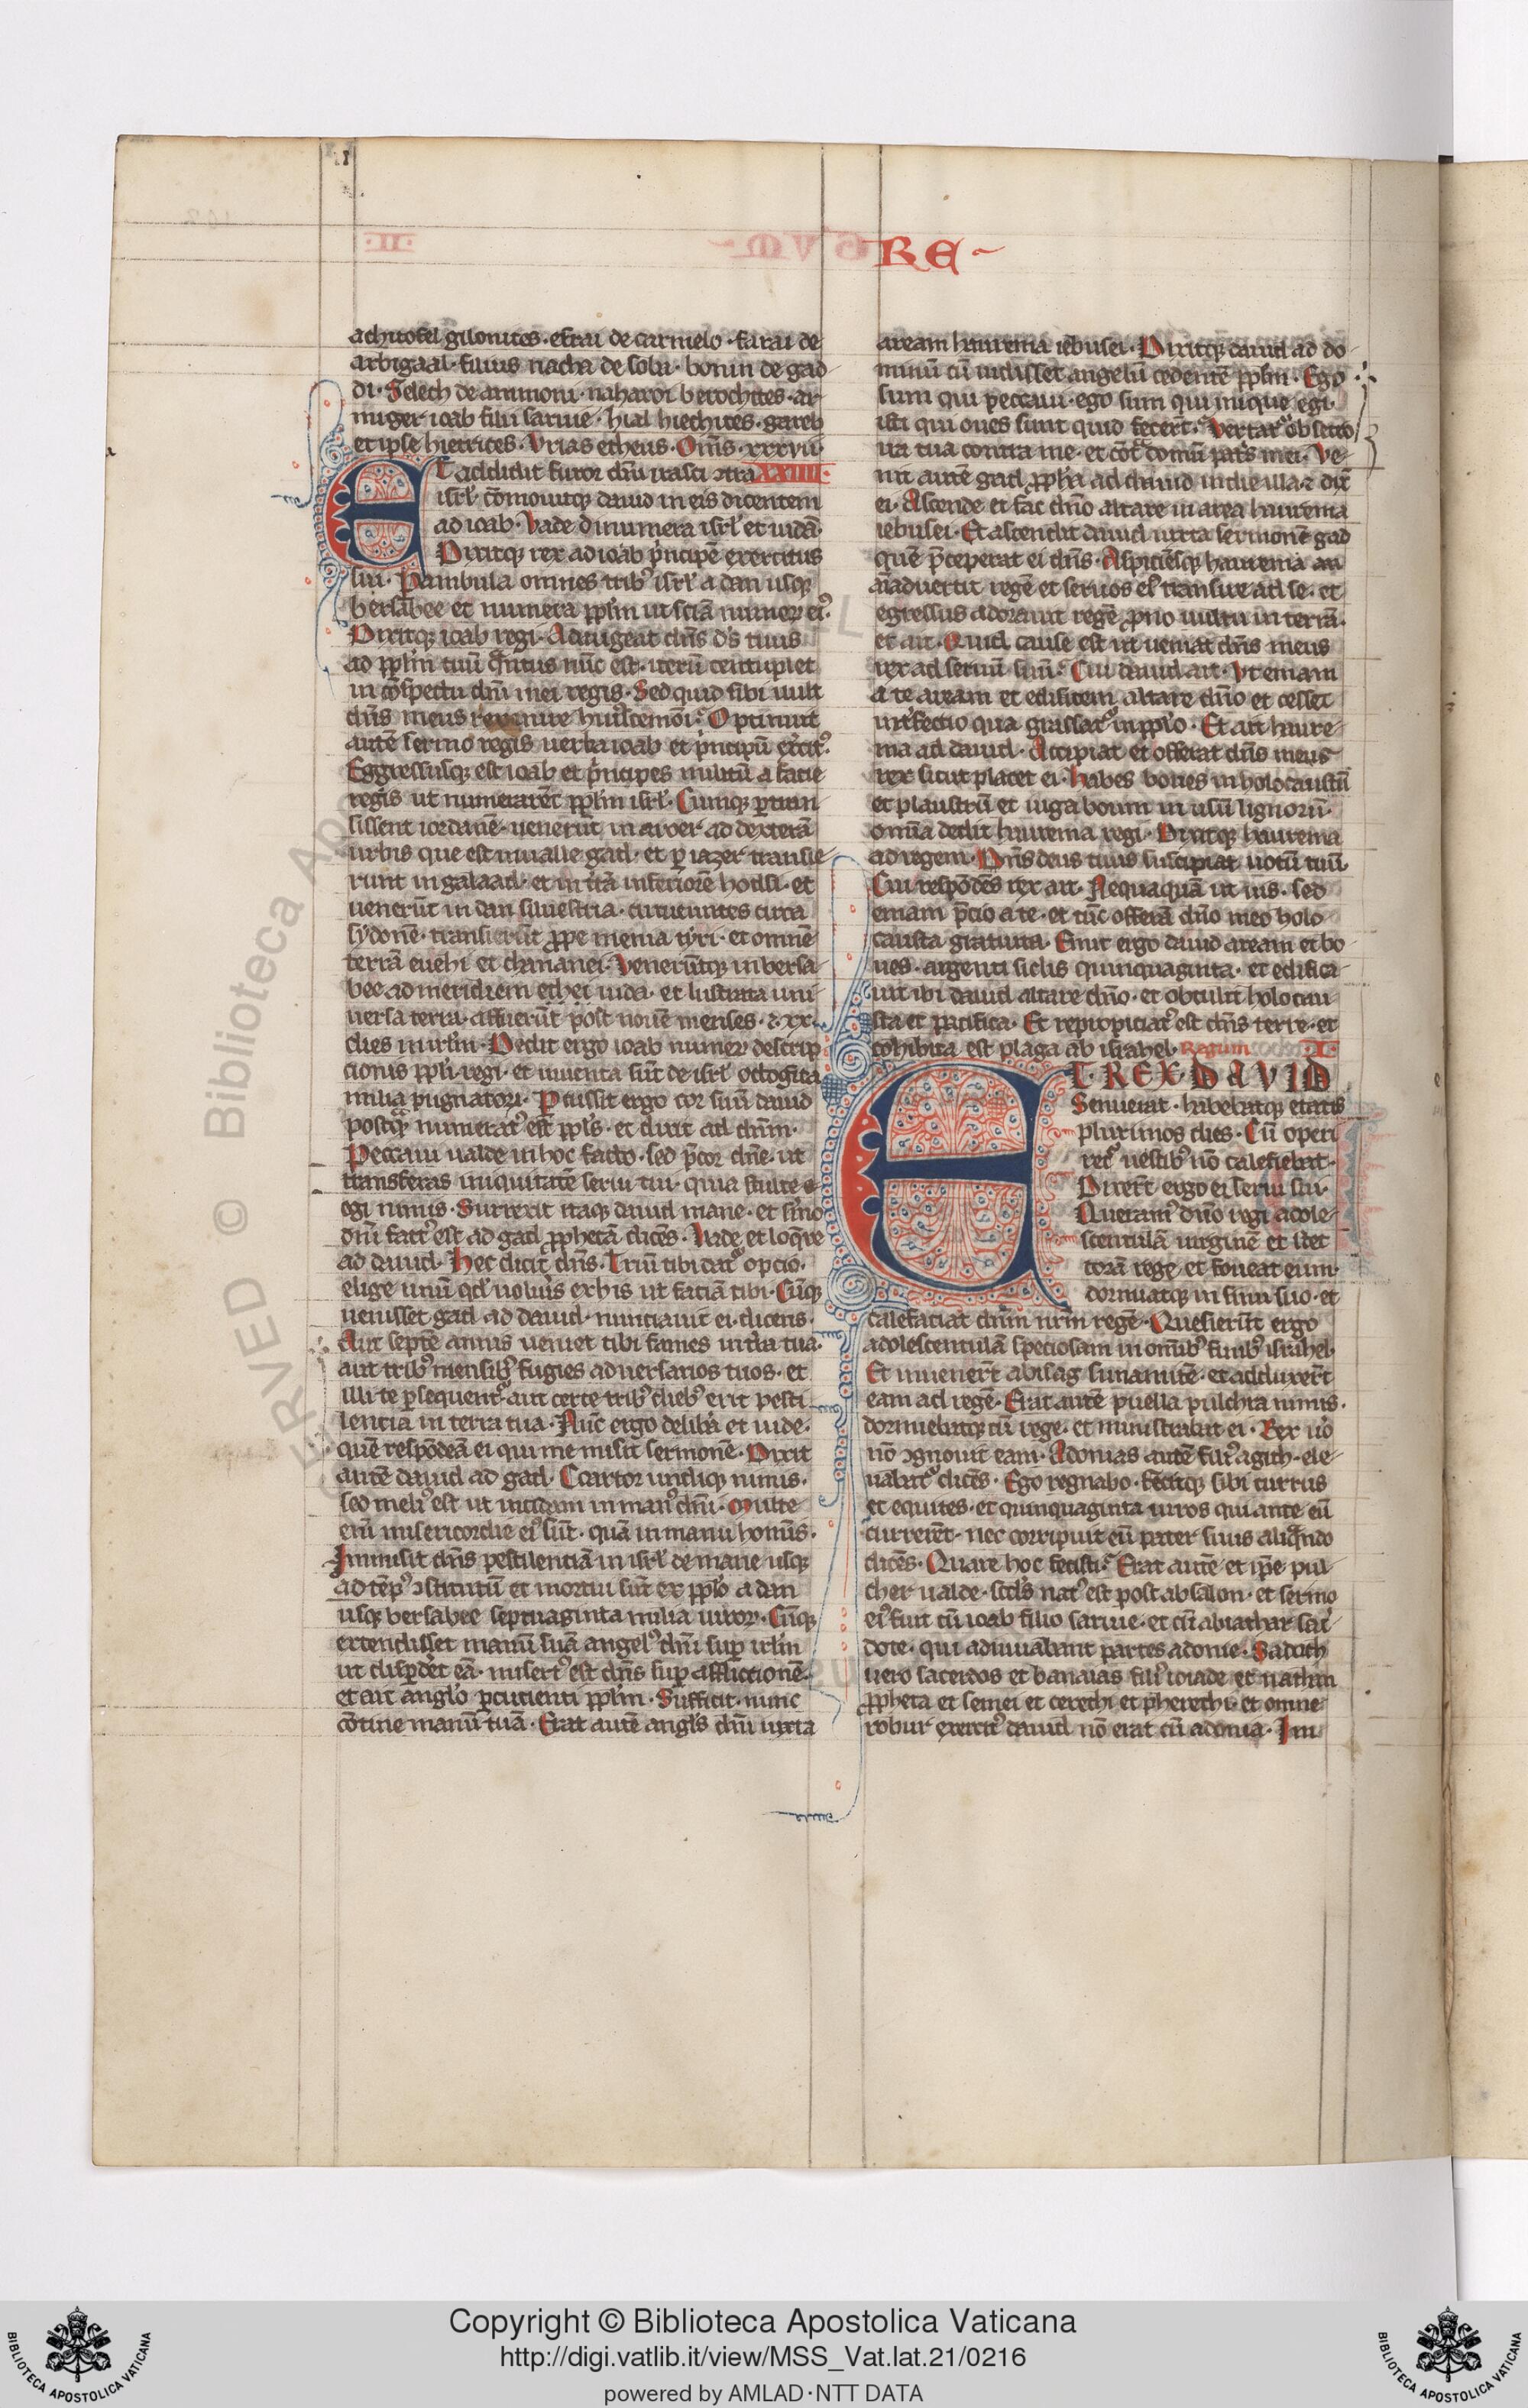 RE
achitofel gilonites · efrai de carmelo · farai de
arbi gaal · filius nathã de soba · bonin de gad
di · Selech de ammoni · naharoi berothites · ar
miger ioab filii saruie · hiai hiethites · gareb
et ipse hietrites · Vrias etheus · Om̃s · xxxvii ·
ET addidit furor dñi irasci ↄtra XXIIII
isrl̃ · cõmouitqꝫ dauid in eis dicentem
ad ioab · Vade dinumera isrl̃ et iudã ·
Dixitqꝫ rex ad ioab pͥncipẽ exercitus
sui · Pambula omnes tribꝰ isrl̃ a dan usqꝫ
bersabee et numera ppl̃m ut sciã numerꝫ eiꝰ ·
Dixitqꝫ ioab regi · Adaugeat dñs dš tuus
ad ppl̃m tuũ qͣntus nũc est · iterũ centuplet
in cõspectu dñi mei regis · Sed quid sibi uult
dñs meus rex in re huiuscemõi · Optinuit
autẽ sermo regis uerba ioab et pͥncipũ exͬcitꝰ ·
Eggressusqꝫ est ioab et pͥncipes militũ a facie
regis ut numerarẽt ppl̃m isrl̃ · Cumqꝫ ꝑtran
sissent iordanẽ · uenerũt in aroer ad dexterã
urbis que est in ualle gad · et ꝑ iazer transie
runt in galaad · et in trã inferiorẽ hodsi · et
uenerũt in dan siluestria · circueuntes circa
sydonẽ · transierũt ꝓpe menia tyri · et omnẽ
terrã euehi et chananei · Venerũtqꝫ in bersa
bee ad meridiem ethei iuda · et lustrata uni
uersa terra · affuerũt post nouẽ menses · ⁊ xx ·
dies in irl̃m · Dedit ergo ioab numerꝫ descrip
tionis ppl̃i regi · et inuenta sũt de isrl̃ octogĩta
milia pugnatorꝫ · Pͨussit ergo cor suũ dauid
postqͣꝫ numeratꝰ est ppl̃s · et dixit ad dñm ·
Peccaui ualde in hoc facto · sed p̃cor dñe · ut
transferas iniquitatẽ serui tui · quia stulte
egi nimis · Surrexit itaqꝫ dauid mane · et sͬmo
dñi factꝰ est ad gad ꝓphetã dicẽs · Vade et loq̃re
ad dauid · Hec dicit dñs · Triũ tibi datᷣ opcio ·
elige unũ qd̃ uolueris ex his ut faciã tibi · Cũqꝫ
uenisset gad ad dauid · nunciauit ei dicens ·
Aut septẽ annis ueniet tibi fames in tr̃a tua ·
aut tribꝰ mensibꝰ fugies aduersarios tuos · et
illi te ꝑsequentᷣ · aut certe tribꝰ diebꝰ erit pesti
lencia in terra tua · Nũc ergo deliƀa et uide ·
quẽ respõdeã ei qui me misit sermonẽ · Dixit
autẽ dauid ad gad · Coartor undiqꝫ nimis ·
sed meliꝰ est ut incidam in manꝰ dñi · Multe
em̃ misericordie eiꝰ sũt · quã in manu hoim̃s ·
Inmisit dñs pestilenciã in isrl̃ de mane usqꝫ
ad tẽpꝰ ↄstitutũ et mortui sũt ex ppl̃o a dan
usqꝫ bersabee septuaginta milia uirorꝫ · Cũqꝫ
extendisset manũ suã angelꝰ dñi suꝑ irl̃m
ut disꝑderet eã · misertꝰ est dñs suꝑ afflictionẽ ·
et ait angl̃o ꝑcutienti ppl̃m · Sufficit · nunc
cõtine manũ tuã · Erat autẽ angl̃s dñi iuxta
aream hauremia iebusei · Dixitqꝫ dauid ad do
minũ cũ uidisset angelũ cedentẽ ppl̃m · Ego
sum qui peccaui · ego sum qui inique egi ·
isti qui oues sunt quid fecerũt · Vertatᷣ obsecro
ira tua contra me · et cõtͣ domũ patͥs mei · Ve
nit autẽ gad ꝓph̃a ad dauid in die illa · ⁊ dix̃
ei · Ascende et fac dño altare in area hauremia
iebusei · Et ascendit dauid iuxta sermonẽ gad
quẽ p̃ceperat ei dñs · Aspiciẽsqꝫ hauremia an
iãaduertit regẽ et seruos eiꝰ transire ad se · et
egressus adorauit regẽ ꝓno uultu in terrã ·
et ait · Quid cause est ut ueniat dñs meus
rex ad seruũ suũ · Cui dauid ait · Vt emam
a te aream et edificem altare dño et cesset
int̃fectio qua grassatᷣ in ppl̃o · Et ait haure
mia ad dauid · Accipiat et offerat dñs meus
rex sicut placet ei · Habes boues in holocaustũ
et plaustrũ et iuga boum in usũ lignorũ ·
omnia dedit hauremia regi · Dixitqꝫ hauremia
ad regem · Dñs deus tuus suscipiat uotũ tuũ ·
Cui respõdẽs rex ait · Nequaquã ut uis · sed
emam p̃cio a te · et nũc offerã dño meo holo
causta gratuita · Emit ergo dauid aream et bo
ues · argenti siclis quinquaginta · et edifica
uit ibi dauid altare dño · et obtulit holocau
sta et pacifica · Et repropiciatꝰ est dñs terre · et
cohibita est plaga ab israhel · Regum
ET · REX · DAVID
Senuerat · habebatqꝫ etatis
plurimos dies · Cũ operi
retᷣ uestibꝰ nõ calefiebat ·
Dixerũt ergo ei serui sui ·
Queramꝰ dño regi adole
scentulã uirginẽ et stet
corã rege et foueat eum
dormiatqꝫ in sinu suo · et
calefaciat dñm nr̃m regẽ · Quesierũt ergo
adolescentulã speciosam in omĩbꝰ finibꝰ israhel ·
Et inuenerũt abisag sunamitẽ · et adduxerũt
eam ad regẽ · Erat autẽ puella pulchra nimis ·
dormiebatqꝫ cũ rege · et ministrabat ei · Rex uͦ
nõ ↄgnouit eam · Adonias autẽ filiꝰ agith · ele
uabatᷣ dicẽs · Ego regnabo · fecitqꝫ sibi currus
et equites · et quinquaginta uiros qui ante eũ
currerẽt · nec corripuit eũ pater suus aliqͣndo
dicẽs · Quare hoc fecisti · Erat autẽ et ip̃e pul
cher ualde · scd̃s natꝰ est post absalon · et sermo
eiꝰ fuit cũ ioab filio saruie · et cũ abiathar sac̃
dote · qui adiuuabant partes adonie · Sadoch
uero sacerdos et banaias filiꝰ ioiade et nathan
ꝓpheta et semei et cerethi et pherethi et omne
robur exercitꝰ dauid nõ erat cũ adonia · Im
Copyright © Biblioteca Apostolica Vaticana
http://digi.vatlib.it/view/MSS_Vat.lat.21/0216
powered by AMLAD·NTT DATA
BIBLIOTECA APOSTOLICA VATICANA
BIBLIOTECA APOSTOLICA VATICANA